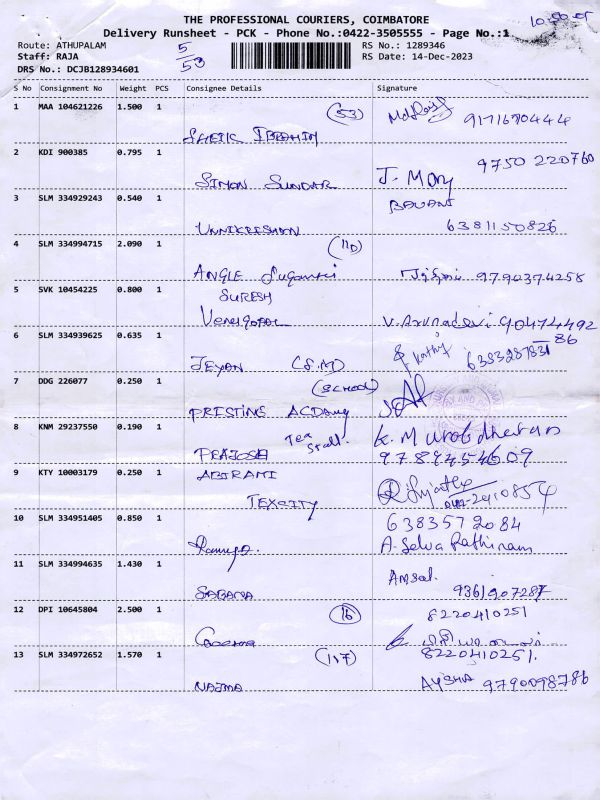 THE PROFESSIONAL COURIERS, COIMBATORE
Delivery Runsheet - PCK - Phone No.:0422-3505555 - Page No.:1
Route: ATHUPALAM
5/53
RS No.: 1289346
Staff: RAJA
RS Date: 14-Dec-2023
DRS No.: DCJB128934601
S No Consignment No Weight PCS Consignee Details Signature
1 MAA 104621226 1.500 1 (53)
SHEIK IBRAHIM
2 KDI 900385 0.795 1 9750 220760
SIMON SUNDAR J. Mary
3 SLM 334929243 0.540 1 BAVANI
UNNIKRISHNAN 6381150826
4 SLM 334994715 2.090 1 (110)
ANGLE Suganthi 9790374258
5 SVK 10454225 0.800 1 SURESH
Venugopal V. Arunadevi 90474492
86
6 SLM 334939625 0.635 1 Kathij
JEYAN
7 DDG 226077 0.250 1 (SCHOOL)
PRISTINE
8 KNM 29237550 0.190 1 Tea Stall. K. Murali dharan
9789454609
9 KTY 10003179 0.250 1 ABIRAMI
TEXCITY
10 SLM 334951405 0.850 1 6383572084
A. Selva Rathinam
11 SLM 334994635 1.430 1
SABANA 9361907287
12 DPI 10645804 2.500 1 (16) 8220410251
13 SLM 334972652 1.570 1 (117) 8220410251.
NAJMA AYSHA 9790098786